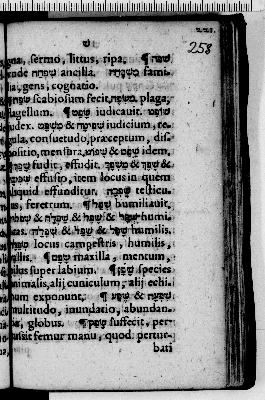 221.
ש
258
gua, sermo, littus, ripa. ¶ שפח
unde שפחה ancilla. משפחה fami-
lia, gens, cognatio.
¶ שפח scabiosum fecit, משפח plaga,
flagellum. ¶ שפט iudicavit. שופט
iudex. משפט & שפוט iudicium, re-
gula, consuetudo, præceptum, dis-
positio, mensura, שפט & idem.
¶ שפך fudit, effudit. שפך &
שפך effusio, item locus in quem
aliquid effunditur. שפכה testicu-
lus, feretrum. ¶ שפל humiliavit,
שפלה & שפל & שפלות humi-
litas. שפל & שפלה humilis.
שפלה locus campestris, humilis,
vallis. ¶ שפם maxilla, mentum,
pilus super labium. ¶ שפן species
animalis, alij cuniculum, alij echi-
num exponunt. ¶ שפע & שפעה
multitudo, inundatio, abundan-
tia, globus. ¶ שפק suffecit, per-
cussit femur manu, quod pertur-
bati